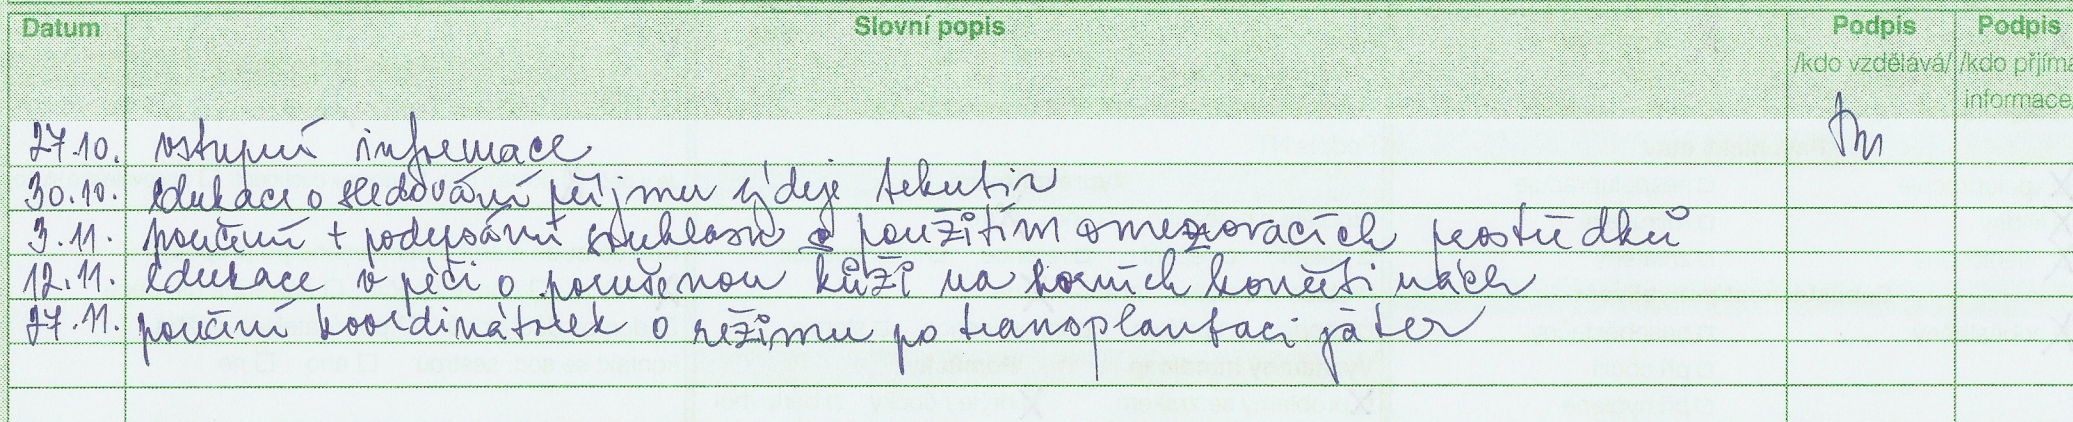 Datum Slovní popis Podpis Podpis
/kdo vzdělává/ /kdo přijímá
informace/
27.10. vstupní informace
30.10. edukace o sledování příjmu výdeje tekutin
3.11. poučení + podepsání souhlasu s použitím omezovacích prostředků
12.11. edukace v péči o porušenou kůži na horních končetinách
27.11. poučení koordinátorek o režimu po transplantaci jater